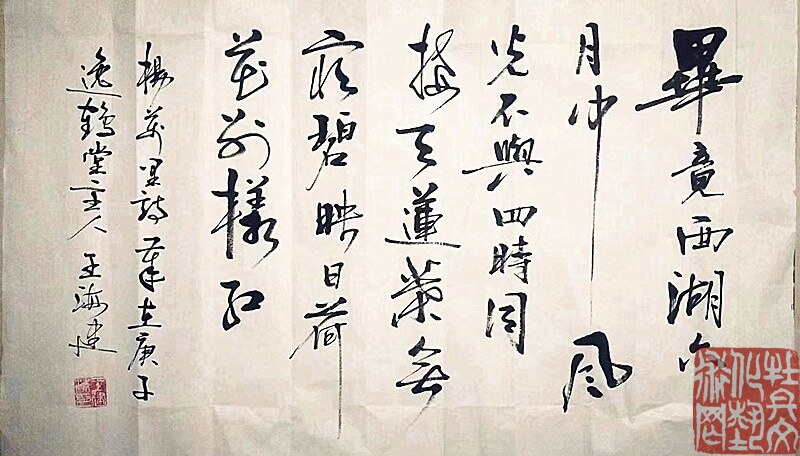 畢竟西湖六
月中風
光不與四時同
接天蓮葉無
窮碧映日荷
花別樣紅
楊萬里詩歲在庚子
逸鶴堂主人王海